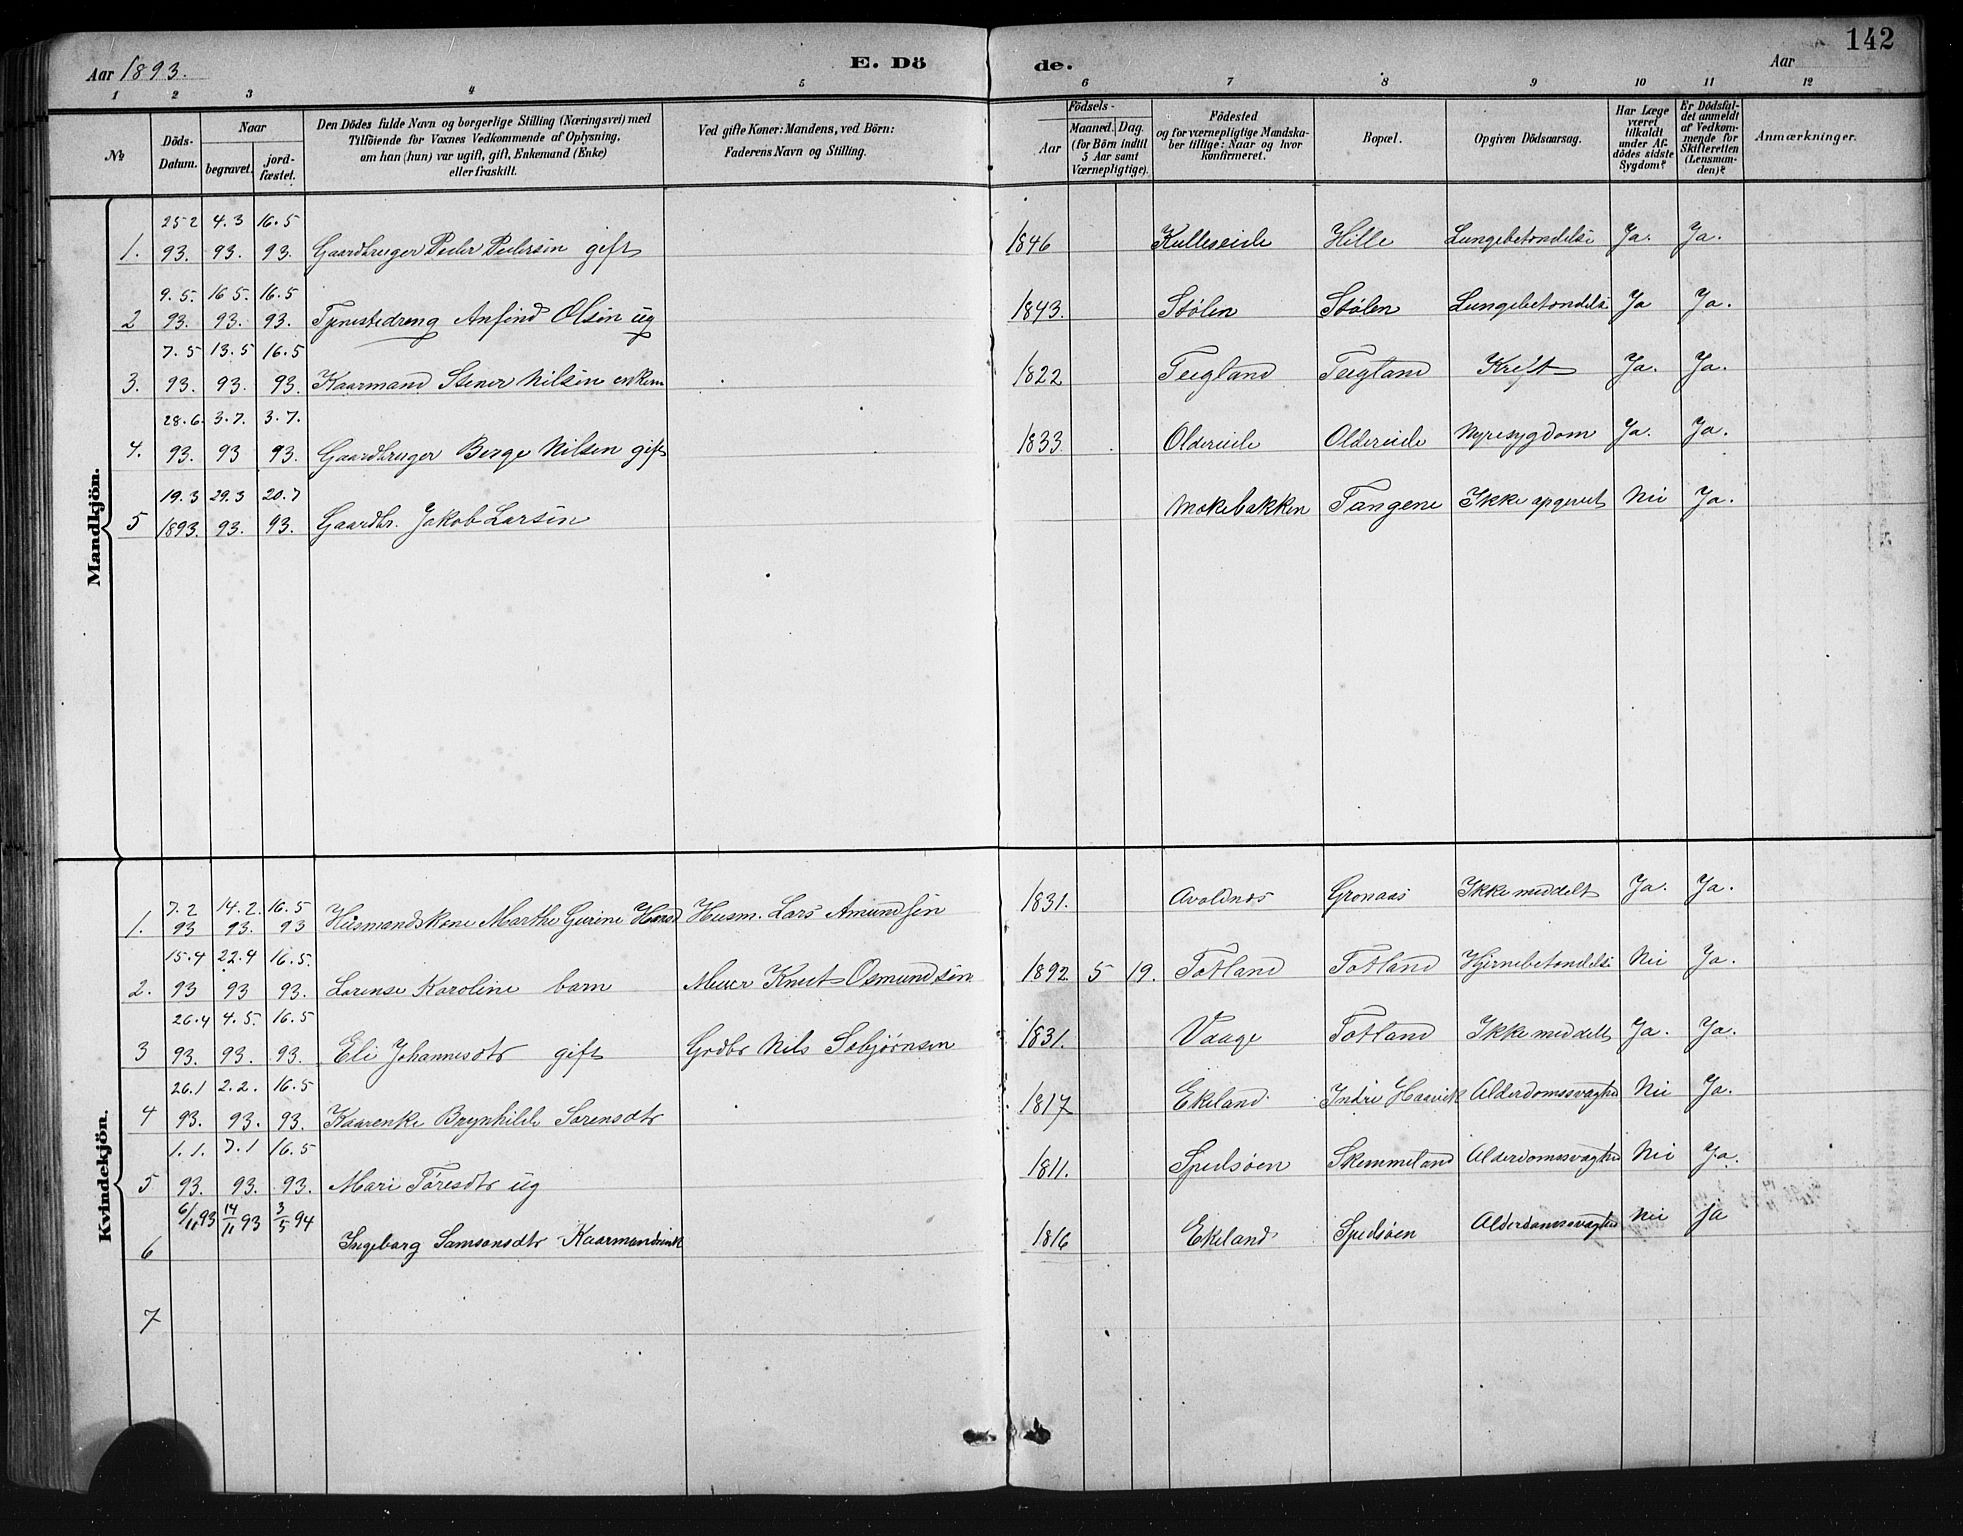 142
Aar 1893. E. Dö de. Aar
1 2 3 4 5 6 7 8 9 10 11 12
№ Döds-Datum. Naar begravet. jord-fæstet. Den Dödes fulde Navn og borgerlige Stilling (Næringsvei) med Tilföiende for Voxnes Vedkommende af Oplysning, om han (hun) var ugift, gift, Enkemand (Enke) eller fraskilt. Ved gifte Koner: Mandens, ved Börn: Faderens Navn og Stilling. Födsels- Aar Maaned. Dag. (for Börn indtil 5 Aar samt Værnepligtige). Födested og for værnepligtige Mandska-ber tillige: Naar og hvor konfirmeret. Bopæl. Opgiven Dödsaarsag. Har Læge været tilkaldt under Af-dödes sidste Sygdom? Er Dödsfal-det anmeldt af Vedkom-mende for Skifteretten (Lensman-den)? Anmærkninger.
Mandkjön.
25 2 4.3 16.5
1. 93. 93. 93. Gaardbruger Peder Pedersen gift 1846 Kulleseide Hille Lungebetændelse Ja. Ja.
9.5. 16 5. 16.5
2 93. 93. 93. Tjenestedreng Anfind Olsen ug 1843. Stølen Stølen Lungebetændelse Ja Ja.
7.5 13.5 16.5
3. 93. 93. 93. Kaarmand Stener Nilsen enkem 1822 Teigland Teigland Kreft Ja. Ja.
28.6. 3.7. 3.7.
4. 93. 93 93. Gaardbruger Berge Nilsen gift 1833. Oldereide Oldereide Nyresygdom Ja. Ja.
19.3 29.3 20.7
5 1893. 93. 93. Gaardbr. Jakob Larsen Mokebakken Tangene Ikke opgivet Nei Ja.
Kvindekjön.
7.2 14.2. 16.5
1. 93 93. 93 Husmandskone Marthe Gurine Husm. Lars Amundsen 1831. Avaldnes Gronaas Ikke meddelt Ja. Ja.
15.4 22.4 16.5.
2. 93 93 93. Lorense Karoline barn Knut Osmundsen 1892. 5 19. Totland Totland Hjernebetændelse Nei Ja.
26.4 4.5. 16.5
3 93. 93. 93. Eli Johannesdtr gift Grdbr Nils Sebjørnsen 1831. Vaage Totland Ikke meddelt Ja. Ja.
26.1 2.2. 16.5
4 93. 93. 93. Kaarenke Brynhilde Sorensdtr 1817 Ekeland Indre Haavik Alderdomssvaghed Nei Ja.
1.1. 7.1 16.5
5 93. 93. 93. Mari Toresdtr ug 1811. Spidsøen Skemmeland Alderdomssvaghed Nei Ja.
6/11 93 14/11 93 3/5 94
6 Ingeborg Samsonsdtr Kaarmandsenke 1816 Ekeland Spidsøen Alderdomssvaghed Nei ja
7